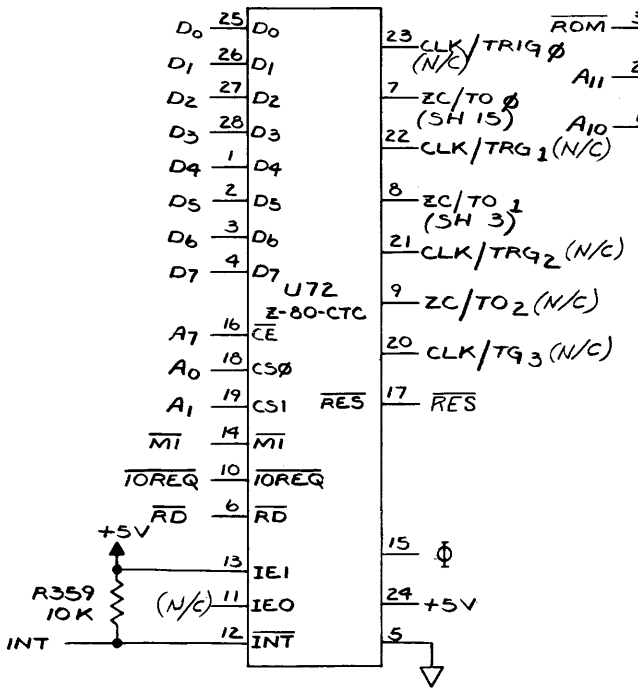 D0 25 D0
D1 26 D1
D2 27 D2
D3 28 D3
D4 1 D4
D5 2 D5
D6 3 D6
D7 4 D7
U72
Z-80-CTC
A7 16 C̅E̅
A0 18 CSØ
A1 19 CS1
M̅1̅ 14 M̅1̅
I̅O̅R̅E̅Q̅ 10 I̅O̅R̅E̅Q̅
R̅D̅ 6 R̅D̅
+5V
13 IEI
R359
10K
(N/C) 11 IEO
INT 12 I̅N̅T̅
23 CLK/TRIG Ø
(N/C)
7 ZC/TO Ø
(SH 15)
22 CLK/TRG1 (N/C)
8 ZC/TO 1
(SH 3)
21 CLK/TRG2 (N/C)
9 ZC/TO2 (N/C)
20 CLK/TG3 (N/C)
R̅E̅S̅ 17 R̅E̅S̅
15 Φ
24 +5V
5
R̅O̅M̅ 3
A11 2
A10